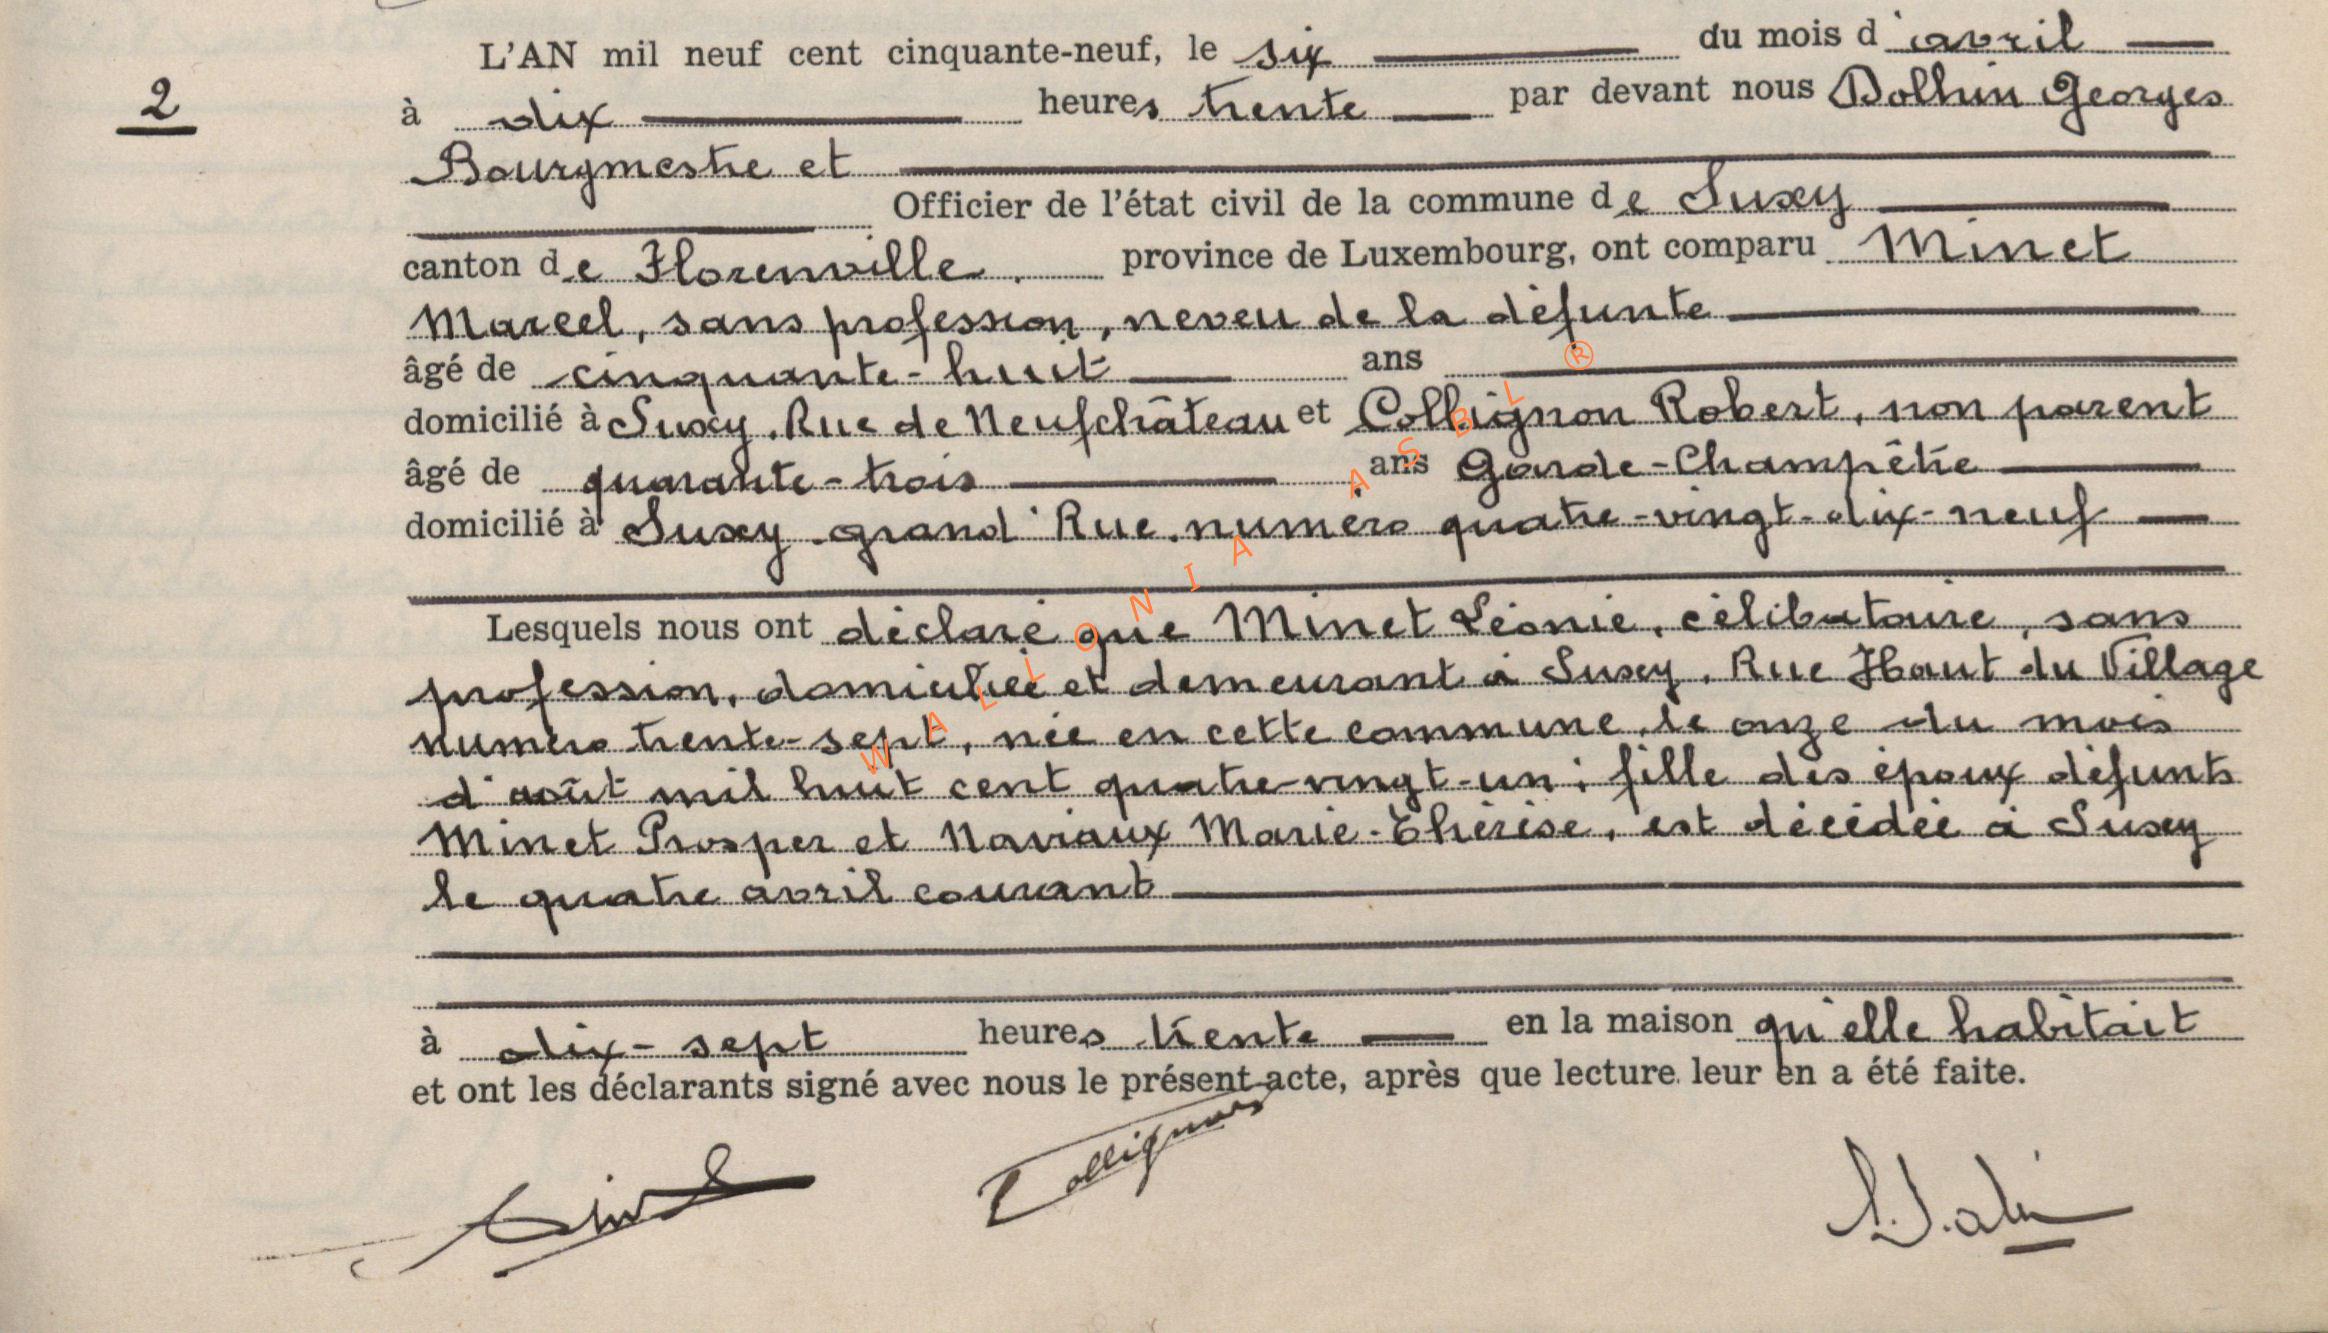 L'AN mil neuf cent cinquante-neuf, le six du mois d'avril
2
à dix heures trente par devant nous Dolhin Georges
Bourgmestre et
Officier de l'état civil de la commune de Suxy
canton de Florenville. province de Luxembourg, ont comparu Minet
Marcel, sans profession, neveu de la défunte
âgé de cinquante-huit ans
domicilié à Suxy. Rue de Neufchâteau et Collignon Robert, non parent
âgé de quarante-trois ans Garde-Champêtre
domicilié à Suxy. grand'Rue. numéro quatre-vingt-dix-neuf
Lesquels nous ont déclaré que Minet Léonie, célibataire, sans
profession, domiciliée et demeurant à Suxy. Rue Haut du Village
numéro trente-sept, née en cette commune, le onze du mois
d'août mil huit cent quatre-vingt-un; fille des époux défunts
Minet Prosper et Naviaux Marie-Thérèse, est décédée à Suxy
le quatre avril courant
à dix-sept heures trente en la maison qu'elle habitait
et ont les déclarants signé avec nous le présent acte, après que lecture leur en a été faite.
Collignon
WALLONIA ASBL ®